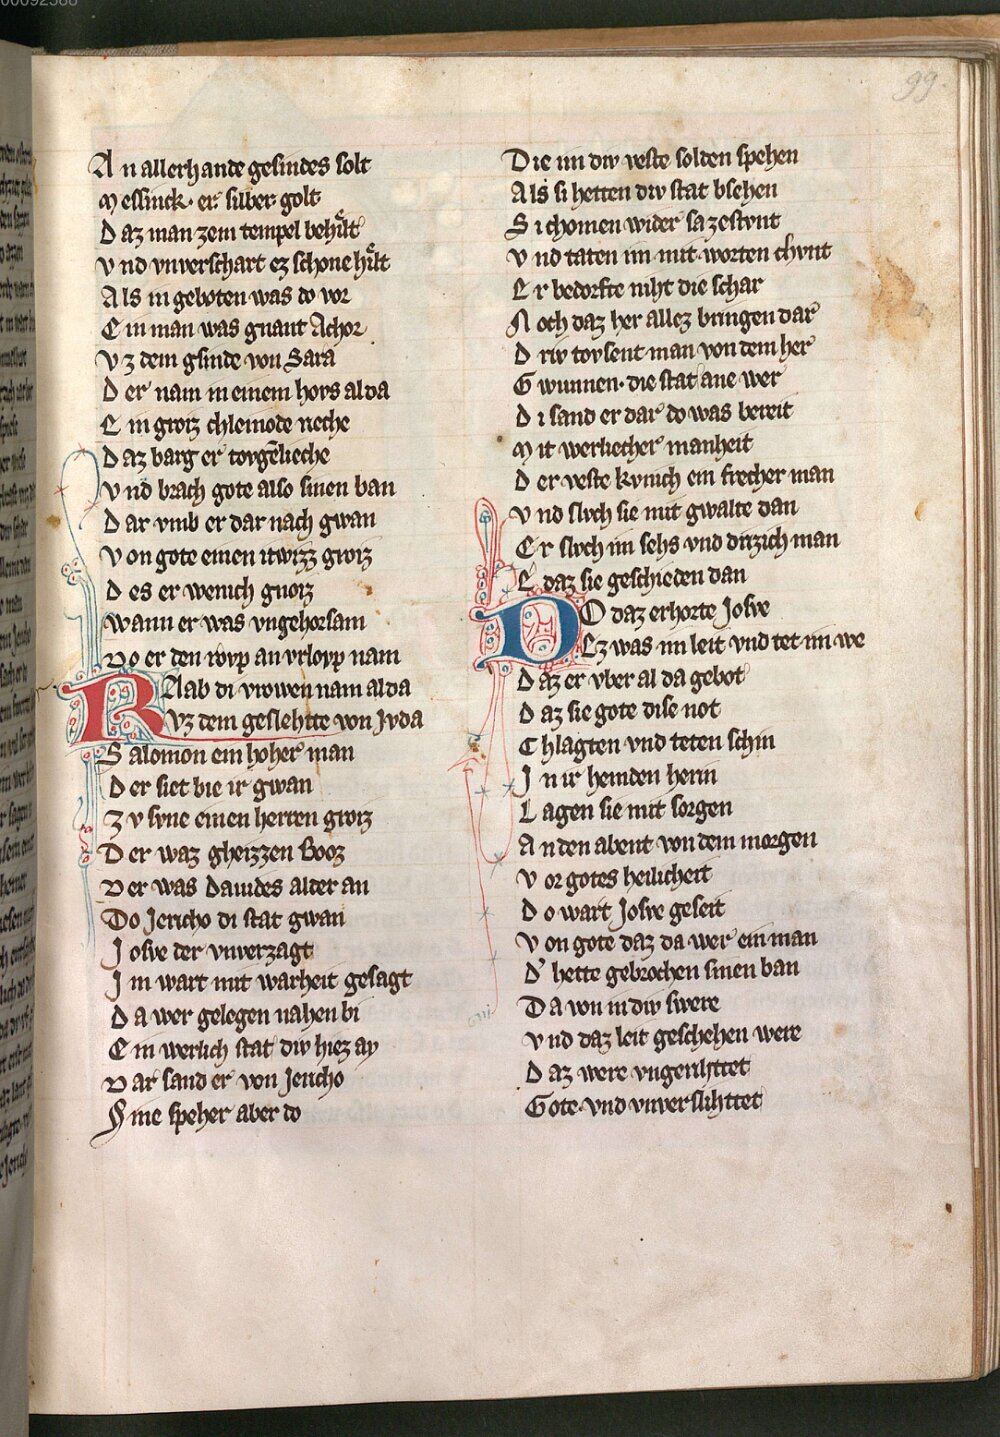 99.
An allerhande gesindes solt
Messinck· er· silber· golt
Daz man zem tempel behiͤlt
Vnd vnverschart ez schone hiͤlt
Als in geboten was do vor
Ein man was gnant Achor
Vz dem gsinde von Sara
Der nam in einem hovs al da
Ein groiz chleinode reche
Daz barg er tovgēliche
Vnd brach gote also sinen ban
Dar vmb er dar nach gwan
Von gote einen itwizz groiz
Des er wenich gnoiz
Wann er was vngehorsam
Do er den royp an vrloyp nam
Raab di vrowen nam al da
Vz dem geslehtte von Jvda
Salomon ein hoher man
Der siet bie ir gwan
Zv svne einen herren groiz
Der waz gheizzen Booz
Der was Dauides alder an
Do Jericho di stat gwan
Josve der vnverzagt
Im wart mit warheit gesagt
Da wer gelegen nahen bi
Ein werlich stat div hiez ay
Dar sand er von Jericho
Sine speher aber do
Die im div veste solden spehen
Als si hetten div stat bsehen
Si chomen wider sa zestvnt
Vnd taten im mit worten chvnt
Er bedorfte niht die schar
Noch daz her allez bringen dar
Driv tovsent man von dem her
Gwunnen· die stat ane wer
Di sand er dar do was bereit
Mit werliecher manheit
Der veste kvnich ein frecher man
Vnd slvch sie mit gwalte dan
Er slvch im sehs vnd drizich man
E daz sie geschieden dan
Do daz erhorte Josve
Ez was im leit vnd tet im we
Daz er vber al da gebot
Daz sie gote dise not
Chlagten vnd teten schin
In ir hemden herin
Lagen sie mit sorgen
An den abent von dem morgen
Vor gotes heilicheit
Do wart Josve geseit
Von gote daz da wer ein man
D' hette gebrochen sinen ban
Da von in div swere
Vnd daz leit geschehen were
Daz were vngerihttet
Gote· vnd vnverslihttet